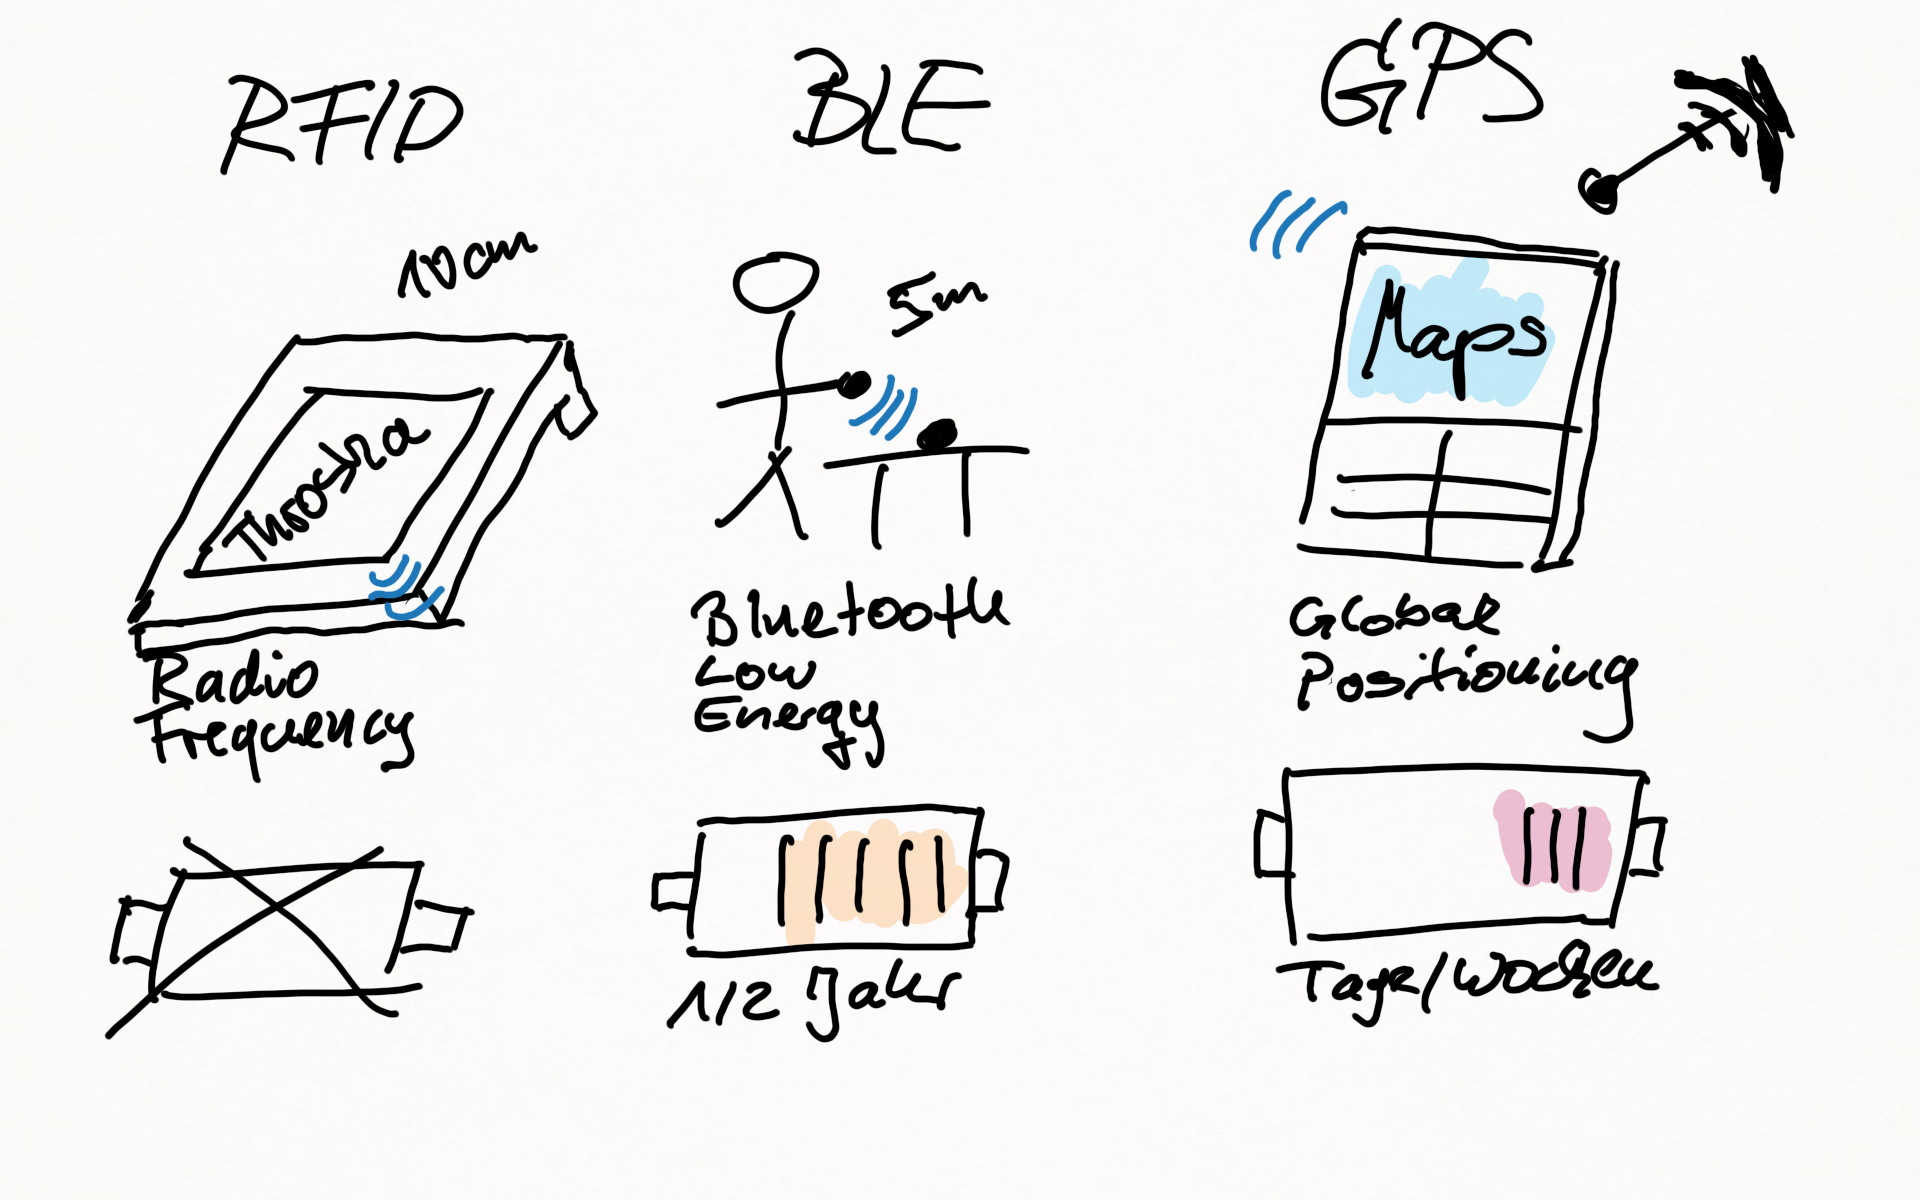 RFID
10cm
Radio
Frequency
BLE
5m
Bluetooth
Low
Energy
1/2 Jahr
GPS
Maps
Global
Positioning
Tage/Wochen